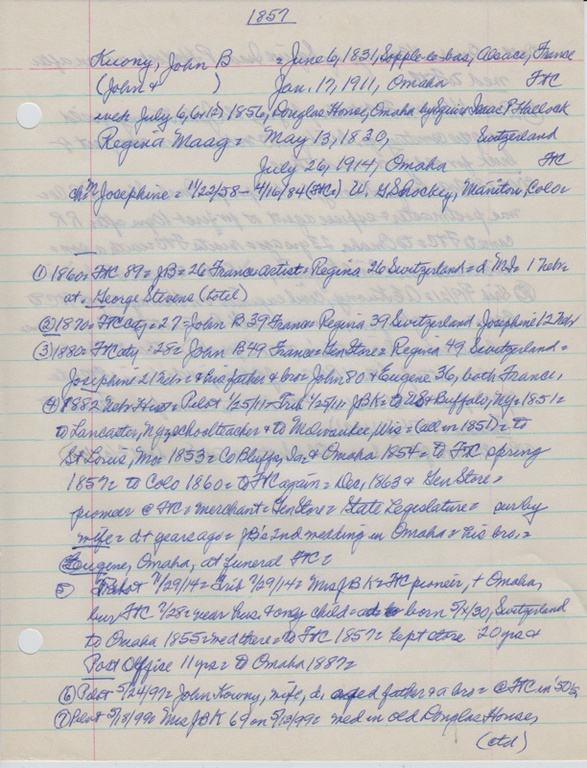 1857
Kuony, John B = June 6, 1831, Sopple-le-bas, Alsace, France
(John & ) Jan. 17, 1911, Omaha FtC
July 6, (6 or 12) 1856, Douglas House, Omaha by Squire Isaac P. Hallock
Regina Maag = May 13, 1830, Switzerland
July 26, 1914, Omaha FtC
Josephine = 11/22/58 - 4/16/84 (FtC) W. G. Shockey, Manitou, Colo
(1) 1860 = FtC 89 = JB = 26 France artist = Regina 26 Switzerland = d Md = 1 Nebr =
at George Stevens (hotel)
(2) 1870 = FtC cty = 27 = John B 39 France Regina 39 Switzerland Josephine 12 Nebr
(3) 1880 = FtC cty = 28 = John B 49 France = Gen Store = Regina 49 Switzerland =
Josephine 21 Nebr = & his father & bro = John 80 & Eugene 36, both France,
(4) 1882 Nebr Hist = Pilot 1/25/11 = Trib 1/25/11 JBK = to US & Buffalo, NY = 1851 =
to Lancaster, NY = schoolteacher & to Milwaukee, Wis = (all in 1851) = to
St Louis, Mo = 1853 = Co Bluffs, Ia & Omaha 1854 = to FtC spring
1857 = to Colo 1860 = to FtC again = Dec, 1863 & Gen Store =
pioneer @ FtC = merchant = Gen Store = State Legislature = sur by
wife = dt years ago = JB's 2nd wedding in Omaha = his bro, =
Eugene, Omaha, at funeral FtC =
5 Pilot 7/29/14 = Trib 7/29/14 = Mrs JBK = FtC pioneer, + Omaha,
bur FtC 7/28 = near hus. & only child = born 5/x/30, Switzerland
to Omaha 1855 = med there = to FtC 1857 = kept store 20 yrs &
Post Office 11 yrs = to Omaha 1887 =
(6) Pilot 5/24/97 = John Kuony, wife, d, aged father & a bro = @ FtC in '50's
(7) Pilot 5/18/99 = Mrs JBK 69 on 5/13/99 = med in old Douglas House,
(ctd)